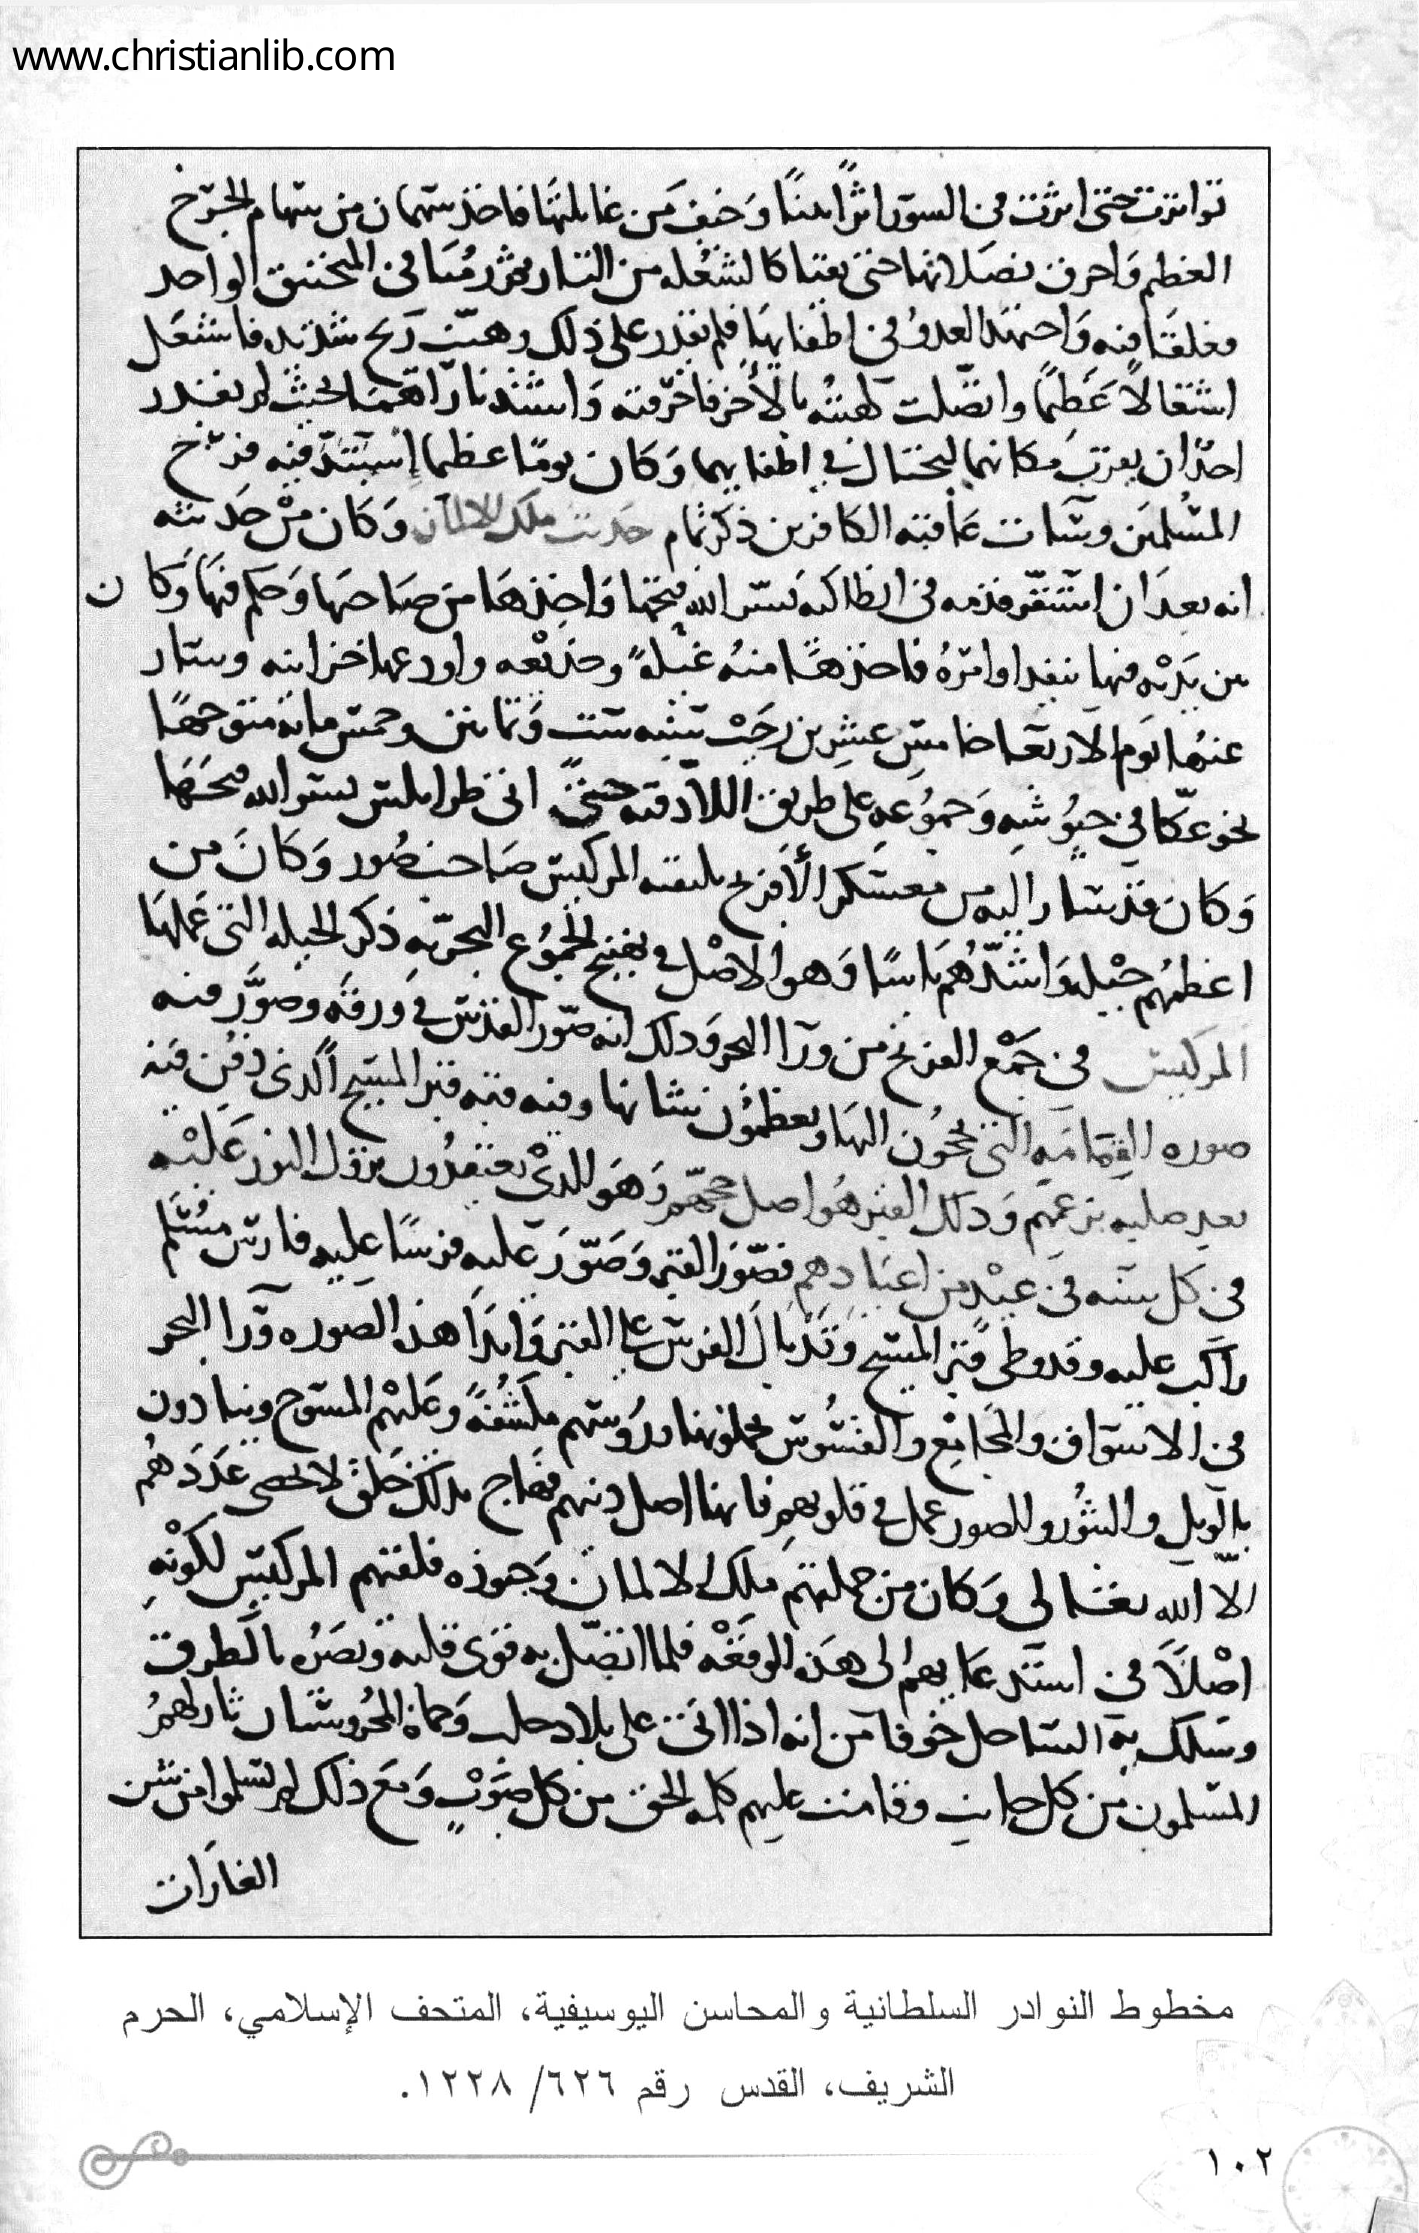 www.christianlib.com
تواترت حتى اثرت في السور اثرًا بينًا وخيف من غايلتها فاخذ سهمان من سهام الجرخ
العظيم واحرق نصلاتهما حتى بقيا كالشعله من النار ثم رميا في المنجنيق الواحد
فعلقا فيه واجتهد العدو في اطفايهما فلم يقدر على ذلك وهبت ريح شديد فاشتعل
اشتعالًا عظيمًا واتصلت لهبته بالآخر فاحرقته واشتد نارهما بحيث لم يقدر
احد ان يقرب مكانهما ليحتال في اطفايهما وكان يومًا عظيما اشتد فيه فرح
المسلمين وسات عاقبه الكافرين ذكر تمام حديث ملك الالمان وكان من حديثه
انه بعد ان استقر قدمه في انطاكيه يسر الله فتحها واخذها من صاحبها وحكم فيها وكان
بين يديه فيها ينفذ اوامره فاخذها منه غيلهً وخديعه واودعها خزاينه وسار
عنها يوم الاربعا خامس عشرين رجب سنه ست وثمانين وخمس مايه متوجهًا
نحو عكا في جيوشه وجموعه على طريق اللاذقيه حتى اتى طرابلس يسر الله فتحها
وكان قد سار اليه من معسكر الافرنج يلتقيه المركيس صاحب صور وكان من
اعظمهم حيله واشدهم باسًا وهو الاصل في تهييج الجموع البحريه ذكر الحيله التي عملها
المركيس في جمع الفرنج من ورا البحر وذلك انه صور القدس في ورقه وصور فيه
صوره القمامه التي يحجون اليها ويعظمون شانها وفيه قبه قبر المسيح الذي دفن فيه
بعد صلبه بزعمهم وذلك القبر هو اصل حجهم وهو الذي يعتقدون نزول النور عليه
في كل سنه في عيد من اعيادهم فصور القبر وصور عليه فرسًا عليه فارس مسلم
راكب عليه وقد وطى قبر المسيح وقد بال الفرس على القبر وابدا هذه الصوره ورا البحر
في الاسواق والمجامع والقسوس يحملونها وروسهم مكشفهً وعليهم المسوح وينادون
بالويل والثبور وللصور عمل في قلوبهم فانها اصل دينهم فهاج بذلك خلق لا يحصي عددهم
الا الله تعالى وكان من جملتهم ملك الالمان وجنوده فلقيهم المركيس لكونه
اصلاً في استدعايهم الى هذه الوقعه فلما اتصل به قوى قلبه وبصره بالطرق
وسلك به الساحل خوفا من انه اذا اتى على بلاد حلب وحماه المحروستان ثار لهم
المسلمون من كل جانب وقامت عليهم كلمه الحق من كل صوب ومع ذلك لم يسلموا من شن
الغارات
مخطوط النوادر السلطانية والمحاسن اليوسيفية، المتحف الإسلامي، الحرم
الشريف، القدس رقم ٦٢٦/ ١٢٢٨.
١٠٢